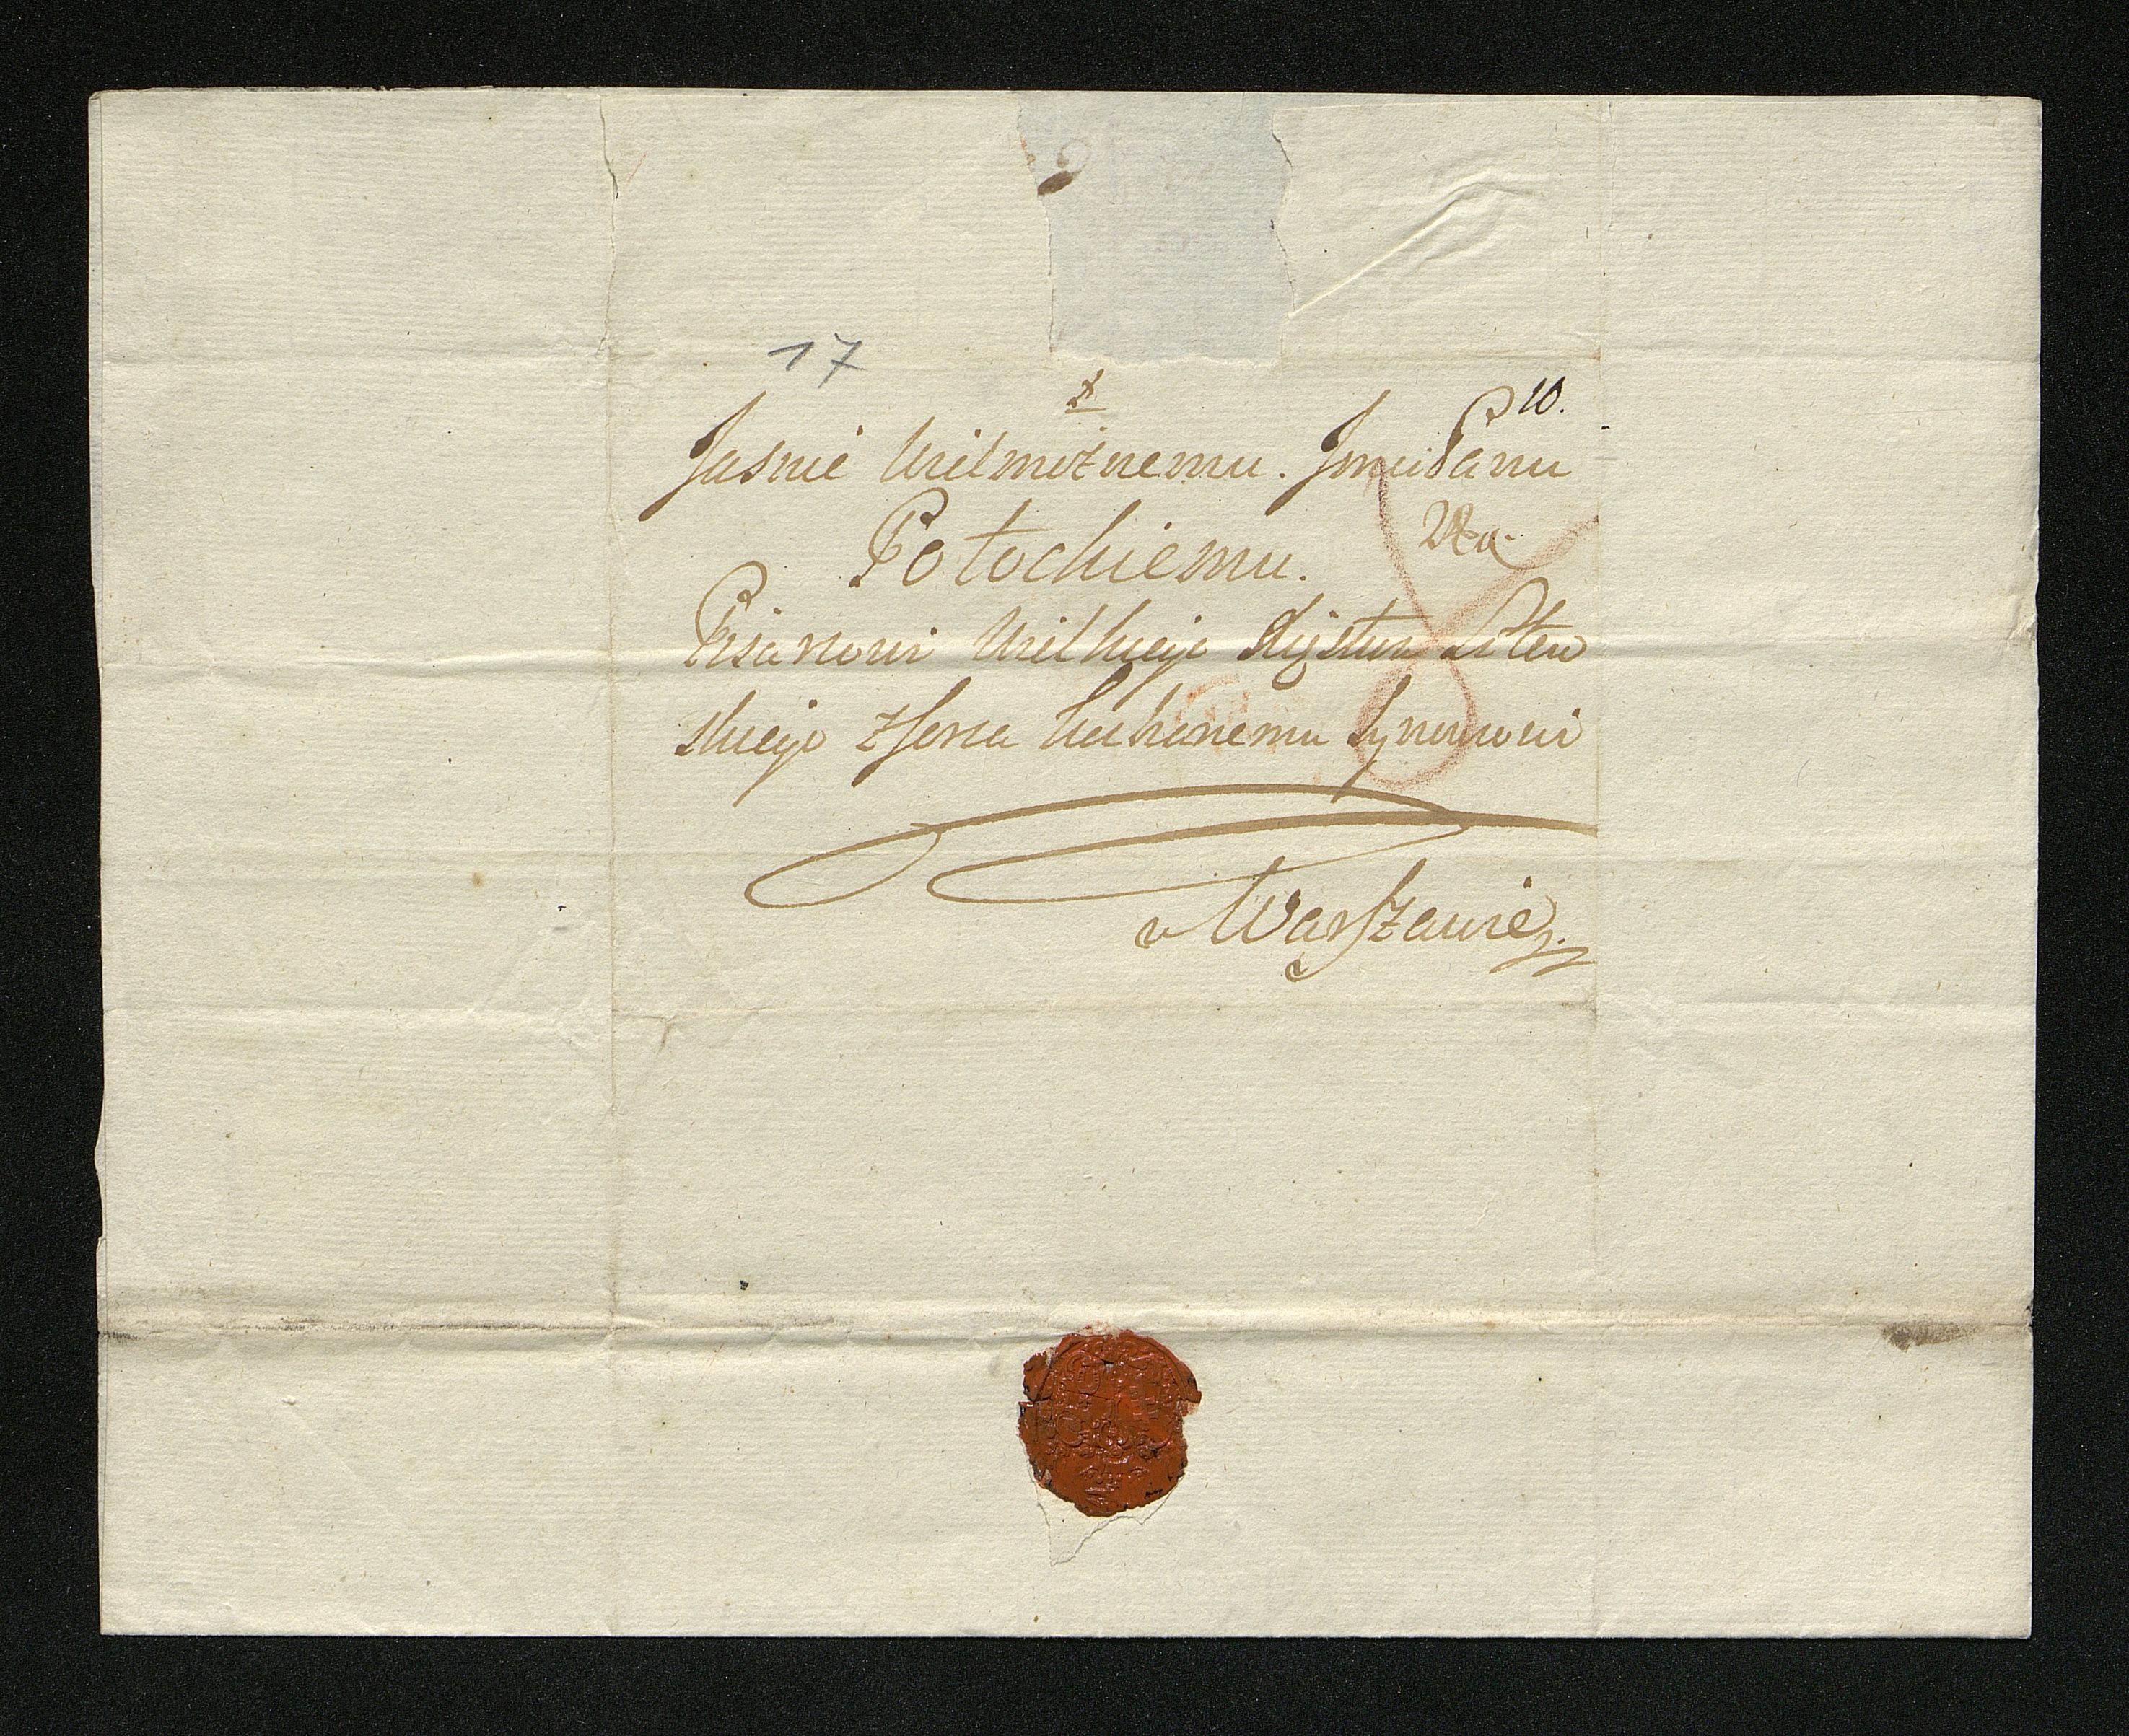 17
10.
Jasnie Wielmożnemu. Jmci Panu
Potockiemu.
Pisarzowi Wielkiego Xięstwa Litew
skiego z serca kochanemu Synowowi
w Warszawie